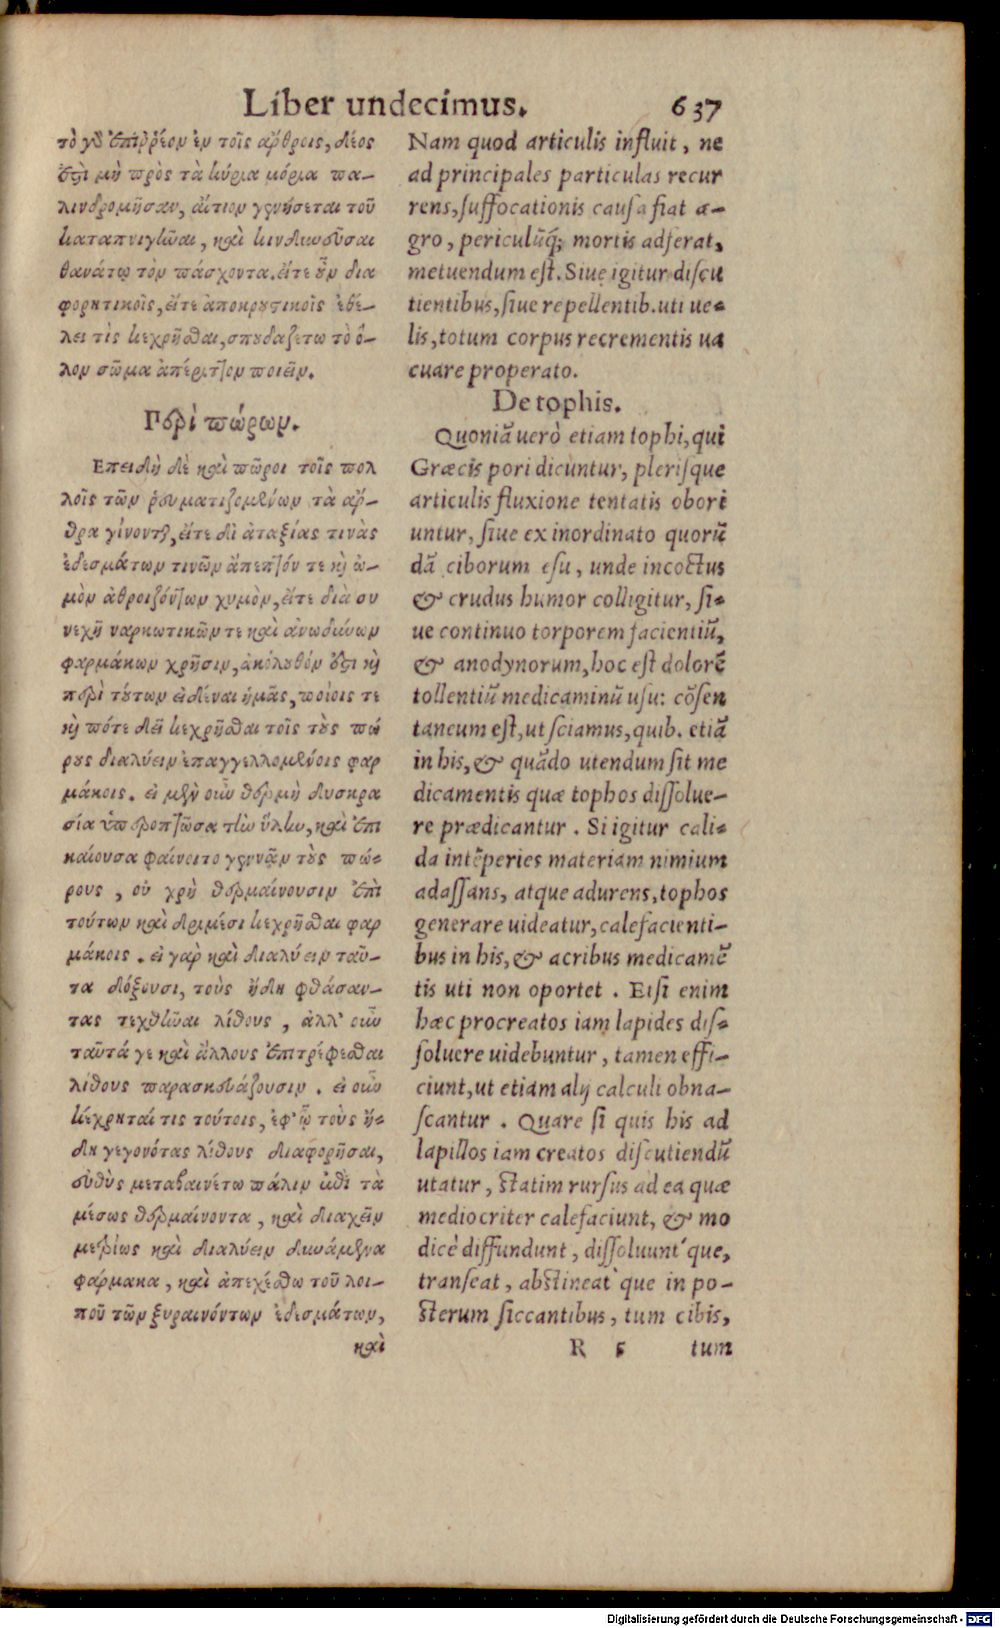 Liber undecimus. 637
τὸ γὰρ ἐπιῤῥέον ἐν τοῖς ἄρθροις, δέος
ἐστὶ μὴ πρὸς τὰ κύρια μόρια πα-
λινδρομῆσαν, αἴτιον γενήσεται τοῦ
καταπνιγῆναι, καὶ κινδυνεῦσαι
θανάτῳ τὸν πάσχοντα. εἴτε οὖν δια
φορητικοῖς, εἴτε ἀποκρουστικοῖς ἐθέ-
λει τὶς κεχρῆσθαι, σπουδαζέτω τὸ ὅ-
λον σῶμα ἀπέριττον ποιεῖν.
Περὶ πώρων.
Επειδὴ δὲ καὶ πῶροι τοῖς πολ
λοῖς τῶν ῥευματιζομένων τὰ ἄρ-
θρα γίνονται, εἴτε δι ἀταξίας τινὰς
ἐδεσμάτων τινῶν ἄπεπτόν τε καὶ ὠ-
μὸν ἀθροιζόντων χυμὸν, εἴτε διὰ συ
νεχῆ ναρκωτικῶν τε καὶ ἀνωδύνων
φαρμάκων χρῆσιν, ἀκόλουθόν ἐστι καὶ
περὶ τούτων εἰδέναι ἡμᾶς, ποίοις τε
καὶ πότε δεῖ κεχρῆσθαι τοῖς τοὺς πώ
ρους διαλύειν ἐπαγγελλομένοις φαρ
μάκοις. εἰ μὲν οὖν θερμὴ δυσκρα
σία ὑπεροπτῶσα τὴν ὕλην, καὶ ἐπι
καίουσα φαίνοιτο γεννᾷν τοὺς πώ-
ρους, οὐ χρὴ θερμαίνουσιν ἐπὶ
τούτων καὶ δριμέσι κεχρῆσθαι φαρ
μάκοις. εἰ γὰρ καὶ διαλύειν ταῦ-
τα δόξουσι, τοὺς ἤδη φθάσαν-
τας τεχθῆναι λίθους, ἀλλ' οὖν
ταῦτά γε καὶ ἄλλους ἐπιτρέφεσθαι
λίθους παρασκευάζουσιν. εἰ οὖν
κέχρηταί τις τούτοις, ἐφ' ᾧ τοὺς ἤ-
δη γεγονότας λίθους διαφορῆσαι,
εὐθὺς μεταβαινέτω πάλιν ἐπὶ τὰ
μέσως θερμαίνοντα, καὶ διαχεῖν
μετρίως καὶ διαλύειν δυνάμενα
φάρμακα, καὶ ἀπεχέσθω τοῦ λοι-
ποῦ τῶν ξηραινόντων ἐδεσμάτων,
καὶ
Nam quod articulis influit, ne
ad principales particulas recur
rens, suffocationis causa fiat æ-
gro, periculũq́; mortis adferat,
metuendum est. Siue igitur discu
tientibus, siue repellentib. uti ue-
lis, totum corpus recrementis ua
cuare properato.
De tophis.
Quoniã uerò etiam tophi, qui
Græcis pori dicuntur, plerisque
articulis fluxione tentatis obori
untur, siue ex inordinato quorũ
dã ciborum esu, unde incoctus
& crudus humor colligitur, si-
ue continuo torporem facientiũ,
& anodynorum, hoc est dolorẽ
tollentiũ medicaminũ usu: cõsen
tancum est, ut sciamus, quib. etiã
in his, & quãdo utendum sit me
dicamentis quæ tophos dissolue-
re prædicantur. Si igitur cali-
da intẽperies materiam nimium
adassans, atque adurens, tophos
generare uideatur, calefacienti-
bus in his, & acribus medicamẽ
tis uti non oportet. Etsi enim
hæc procreatos iam lapides dis-
soluere uidebuntur, tamen effi-
ciunt, ut etiam alij calculi obna-
scantur. Quare si quis his ad
lapillos iam creatos discutiendũ
utatur, statim rursus ad ea quæ
mediocriter calefaciunt, & mo
dicè diffundunt, dissoluunt'que,
transeat, abstineat'que in po-
sterum siccantibus, tum cibis,
R 5 tum
Digitalisierung gefördert durch die Deutsche Forschungsgemeinschaft - DFG